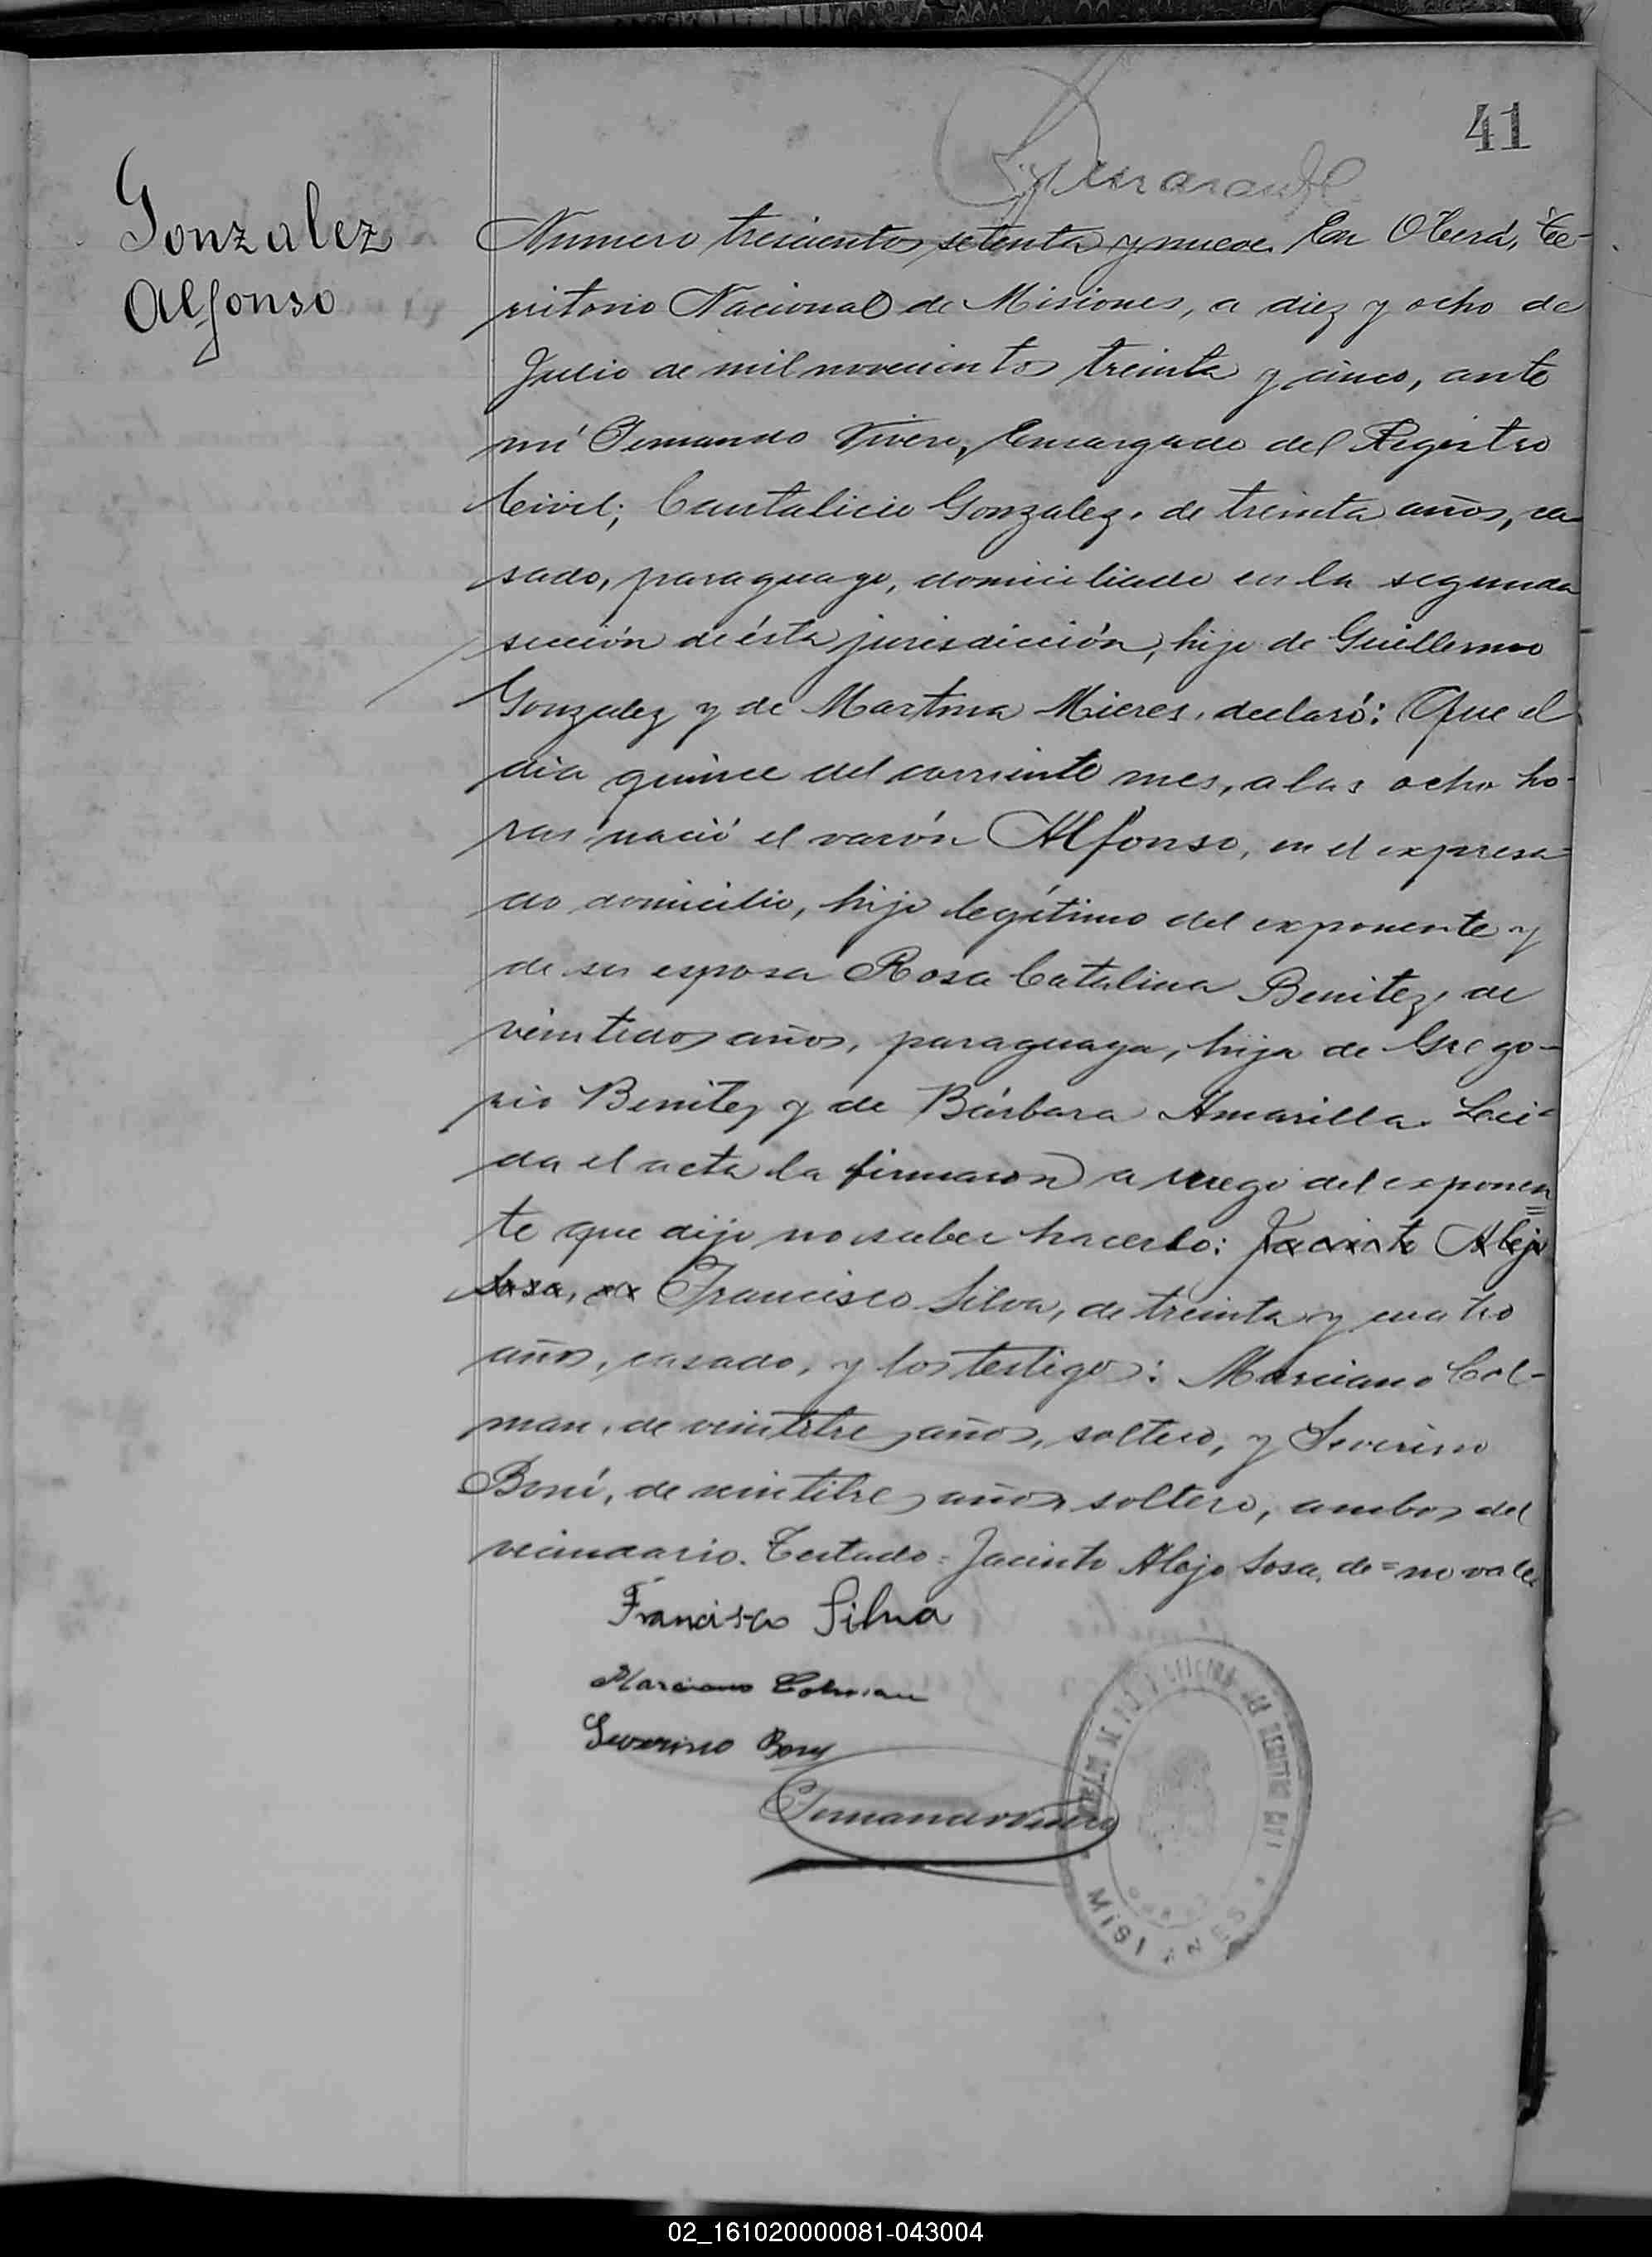 41
Gonzalez
Alfonso
Numero trescientos setenta y nueve. En Oberá, Te-
rritorio Nacional de Misiones, a diez y ocho de
Julio de mil novecientos treinta y cinco, ante
mí Fernando Vivero, Encargado del Registro
Civil; Cantalicio Gonzalez, de treinta años, ca
sado, paraguayo, domiciliado en la segunda
sección de ésta jurisdicción, hijo de Guillermo
Gonzalez y de Martina Mieres, declaró: Que el
dia quince del corriente mes, a las ocho ho-
ras nació el varón Alfonso, en el expresa-
do domicilio, hijo legítimo del exponente y
de su esposa Rosa Catalina Benitez, de
veintidos años, paraguaya, hija de Grego-
rio Benitez y de Bárbara Amarilla. Lei-
da el acta la firmaron a ruego del exponen
te que dijo no saber hacerlo: Jacinto Alejo
Sosa, de Francisco Silva, de treinta y cuatro
años, casado, y los testigos: Marciano Col-
man, de veintitre años, soltero, y Severino
Boní, de veintitre años soltero, ambos del
vecindario. Testado = Jacinto Alejo Sosa, de = no vale
Francisco Silva
Marciano Colman
Severino Bony
MISIONES
02_161020000081-043004